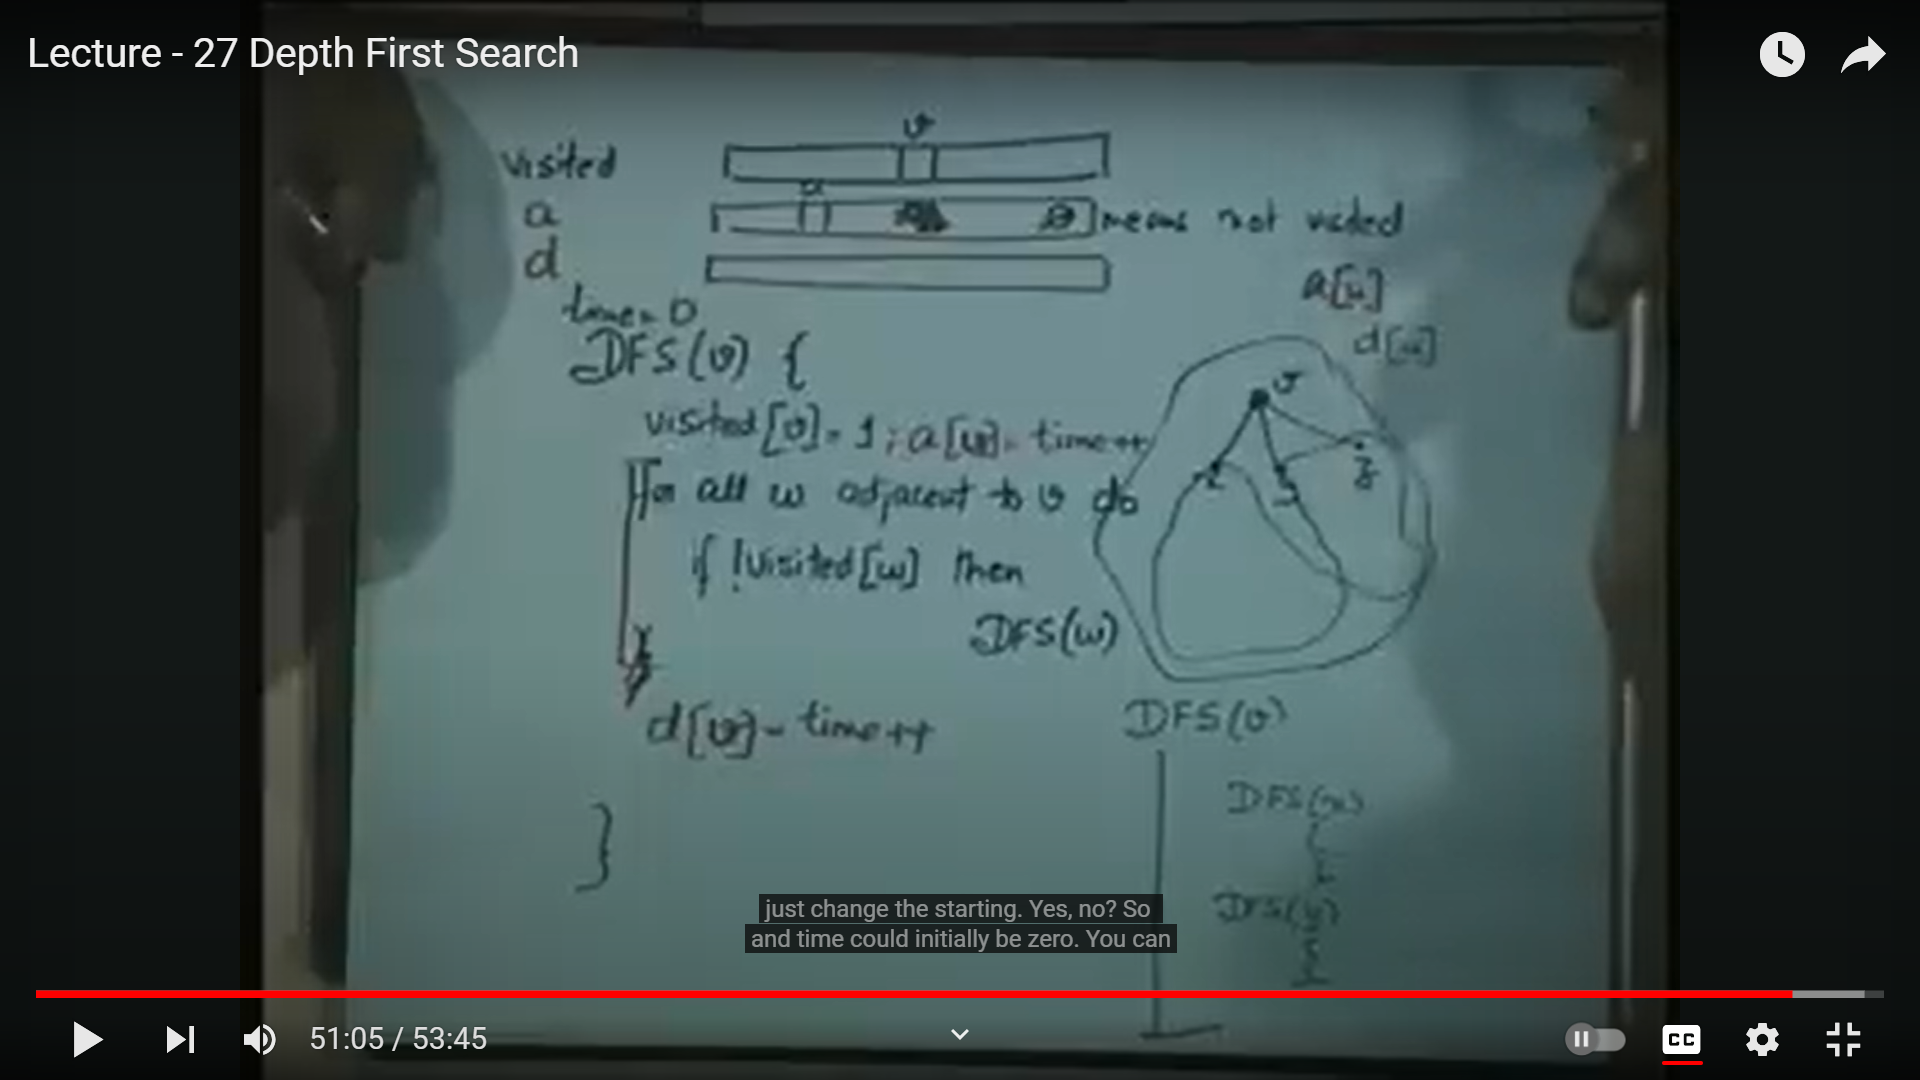 Lecture - 27 Depth First Search
v
visited
a
a
means not visited
d
a[u]
time = 0
d[u]
DFS(v) {
v
visited[v] = 1 ; a[v] = time++
For all w adjacent to v do
if !visited[w] then
DFS(w)
d[v] = time++
DFS(v)
DFS(x)
}
just change the starting. Yes, no? So
and time could initially be zero. You can
51:05 / 53:45
CC